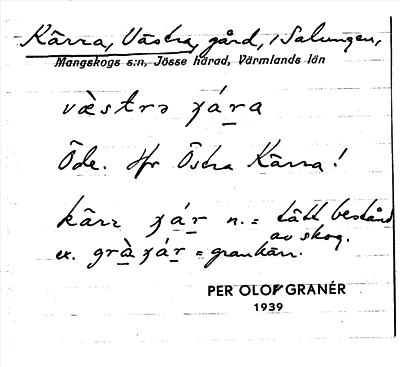 Kärra, Västra, gård, i Salungen,
Mangskogs s:n, Jösse härad, Värmlands län
væ̀strə χára
Öde. Jfr Östra Kärra!
kärr χár n. = tätt bestånd
av skog.
ex. gràχár = grankärr.
PER OLOF GRANÉR
1939